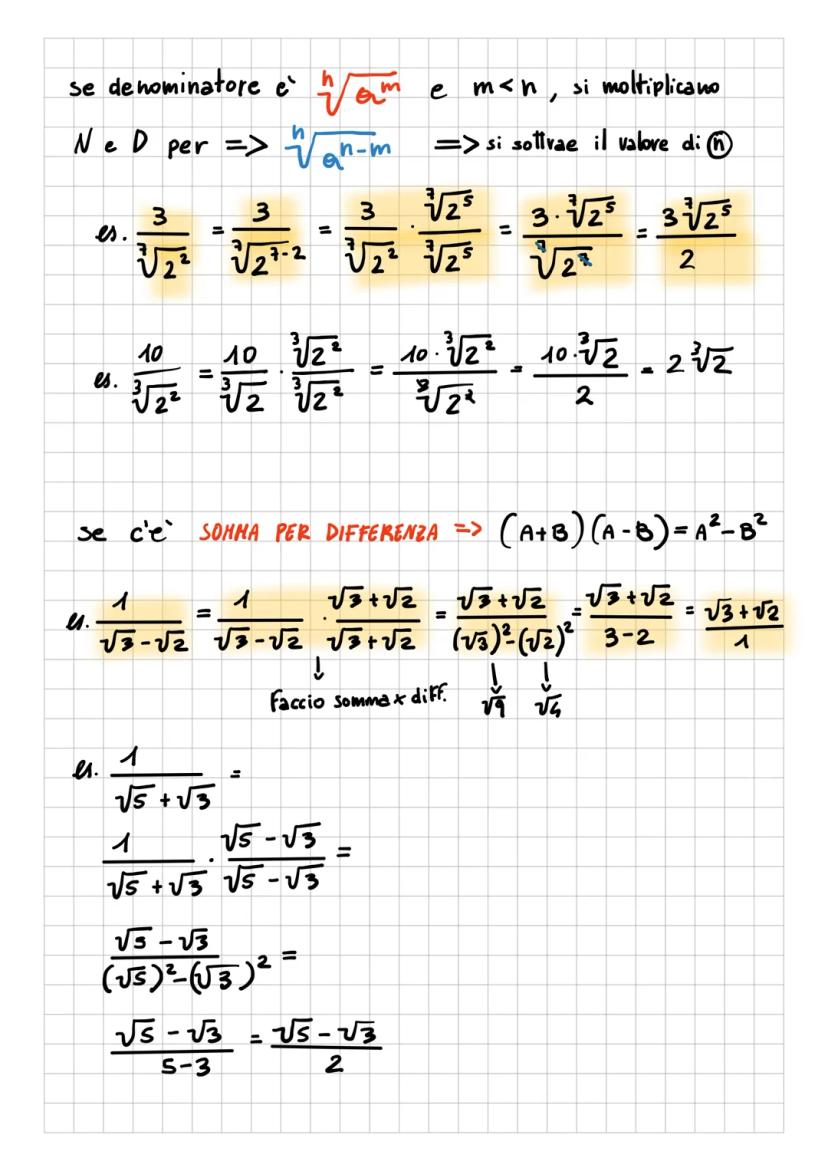 se denominatore e' ⁿ√aᵐ e m<n, si moltiplicano
N e D per => ⁿ√aⁿ⁻ᵐ => si sottrae il valore di ⓝ
es. 3/⁷√2² = 3/⁷√2⁷⁻² = 3/⁷√2² · ⁷√2⁵/⁷√2⁵ = 3·⁷√2⁵/⁷√2⁷ = 3⁷√2⁵/2
es. 10/³√2² = 10/³√2 · ³√2²/³√2² = 10·³√2²/³√2² = 10·³√2/2 = 2³√2
se c'e' SOMMA PER DIFFERENZA => (A+B)(A-B)=A²-B²
es. 1/(√3-√2) = 1/(√3-√2) · (√3+√2)/(√3+√2) = (√3+√2)/((√3)²-(√2)²) = (√3+√2)/(3-2) = (√3+√2)/1
↓ ↓ ↓
Faccio somma x diff. √9 √4
es. 1/(√5+√3) =
1/(√5+√3) · (√5-√3)/(√5-√3) =
(√5-√3)/((√5)²-(√3)²) =
(√5-√3)/(5-3) = (√5-√3)/2